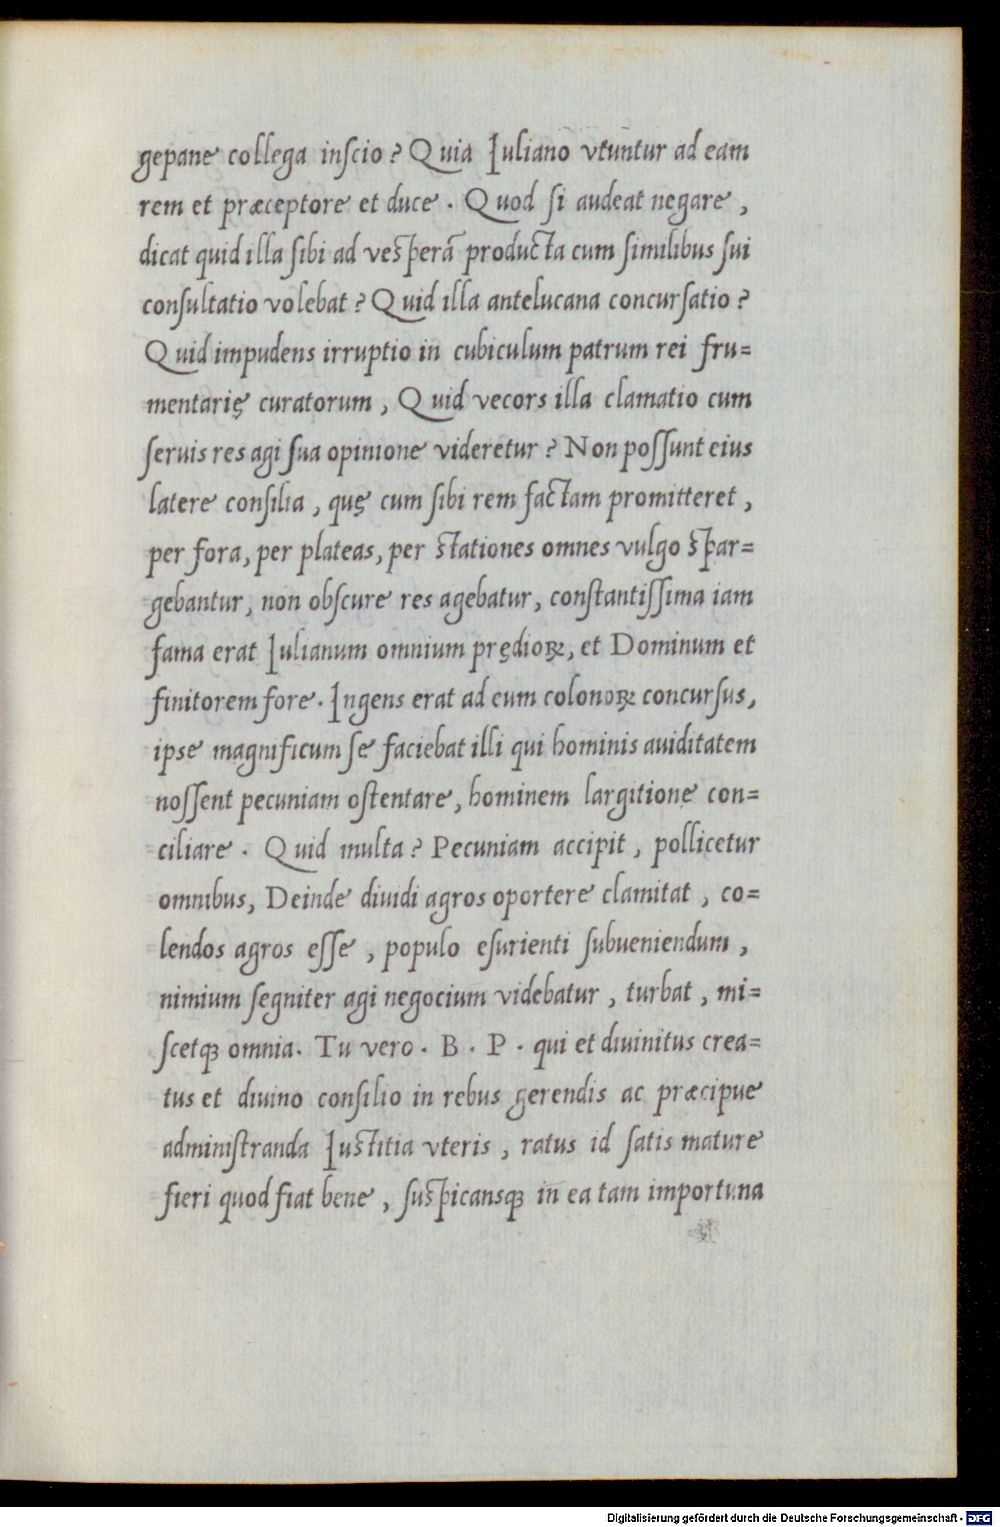 gepane collega inscio? Quia Iuliano vtuntur ad eam
rem et præceptore et duce. Quod si audeat negare,
dicat quid illa sibi ad vesperã producta cum similibus sui
consultatio volebat? Quid illa antelucana concursatio?
Quid impudens irruptio in cubiculum patrum rei fru=
mentarię curatorum, Quid vecors illa clamatio cum
seruis res agi sua opinione videretur? Non possunt eius
latere consilia, quę cum sibi rem factam promitteret,
per fora, per plateas, per stationes omnes vulgo spar=
gebantur, non obscure res agebatur, constantissima iam
fama erat Iulianum omnium prędioꝝ, et Dominum et
finitorem fore. Ingens erat ad eum colonoꝝ concursus,
ipse magnificum se faciebat illi qui hominis auiditatem
nossent pecuniam ostentare, hominem largitione con=
ciliare. Quid multa? Pecuniam accipit, pollicetur
omnibus, Deinde diuidi agros oportere clamitat, co=
lendos agros esse, populo esurienti subueniendum,
nimium segniter agi negocium videbatur, turbat, mi=
scetqꝫ omnia. Tu vero. B. P. qui et diuinitus crea=
tus et diuino consilio in rebus gerendis ac præcipue
administranda Iustitia vteris, ratus id satis mature
fieri quod fiat bene, suspicansqꝫ in ea tam importuna
Digitalisierung gefördert durch die Deutsche Forschungsgemeinschaft - DFG